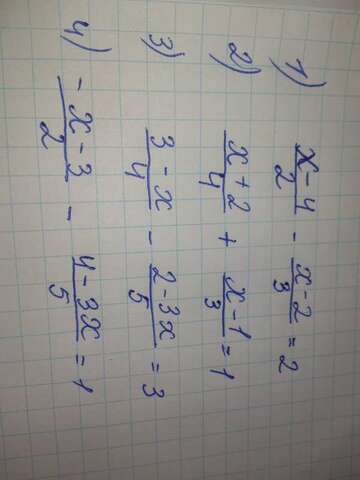 1) x-4/2 - x-2/3 = 2
2) x+2/4 + x-1/3 = 1
3) 3-x/4 - 2-3x/5 = 3
4) -x-3/2 - 4-3x/5 = 1